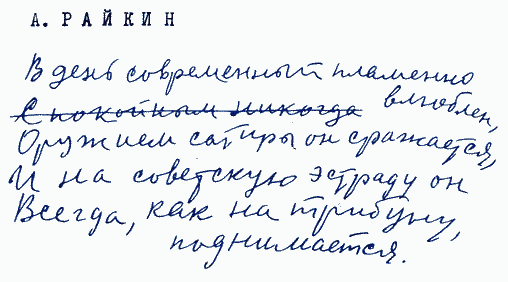 А. РАЙКИН
В день современный пламенно
Спокойным никогда влюблен,
Оружием сатиры он сражается,
И на советскую эстраду он
Всегда, как на трибуну,
поднимается.